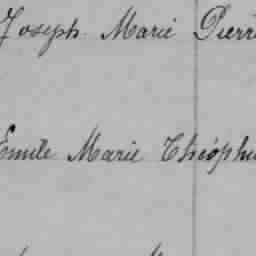 Joseph Marie Pierre
Emile Marie Théophi